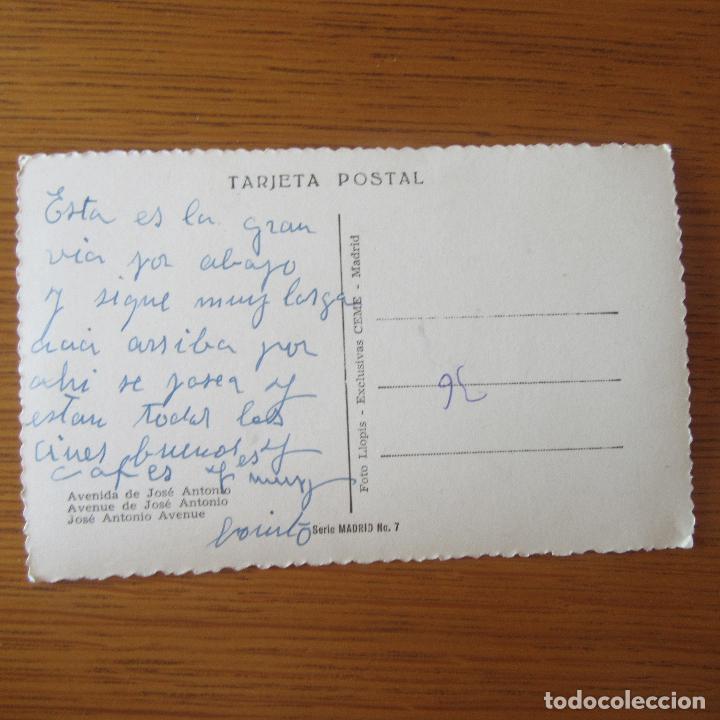 TARJETA POSTAL
Esta es la gran
via por abajo
y sigue muy larga
acia arriba por
ahi se pasea y
estan todos los
cines buenos y
cafes y es muy
bonito
Avenida de José Antonio
Avenue de José Antonio
José Antonio Avenue
Serie MADRID No. 7
Foto Llopis - Exclusivas CEME - Madrid
todocoleccion